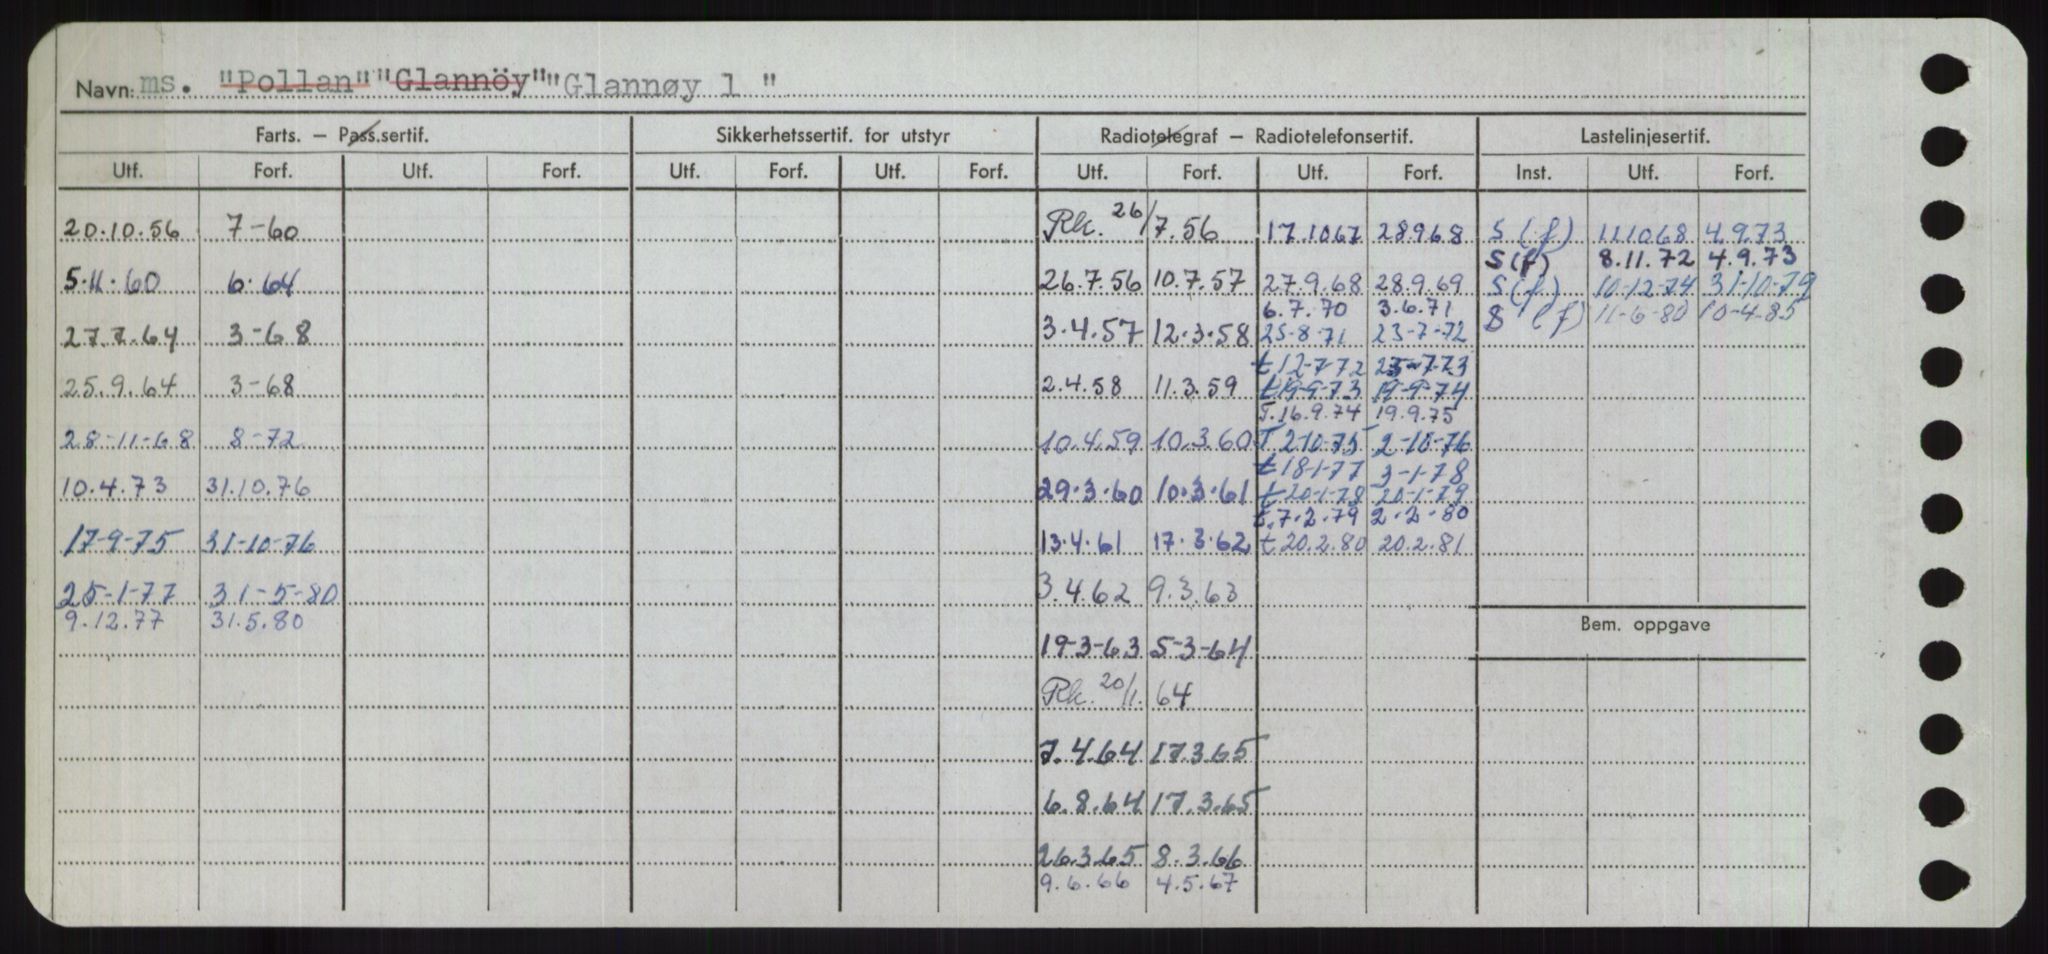 Navn: ms. "Pollan" "Glannöy" "Glannøy 1 "
Farts. – Pass.sertif. Sikkerhetssertif. for utstyr Radiotelegraf – Radiotelefonsertif. Lastelinjesertif.
Utf. Forf. Utf. Forf. Utf. Forf. Utf. Forf. Utf. Forf. Utf. Forf. Inst. Utf. Forf.
20.10.56 7-60 Rk. 26/7.56 17.10.67 28.9.68 S (f) 11.10.68 4.9.73
S(f) 8.11.72 4.9.73
5.11.60 6.64 26.7.56 10.7.57 27.9.68 28.9.69 S(f) 10-12-74 31-10-79
6.7.70 3.6.71 S (f) 11-6-80 10-4-85
27.7.64 3-68 3.4.57 12.3.58 25-8-71 23-7-72
t 12-7-72 23-7-73
25.9.64 3-68 2.4.58 11.3.59 t 19-9-73 19-9-74
T. 16.9.74 19.9.75
28-11-68 8-72 10.4.59 10.3.60 T. 2-10-75 2-10-76
t 18-1-77 3-1-78
10.4.73 31.10.76 29.3.60 10.3.61 t 20-1-78 20-1-79
t. 7.2.79 2.2.80
17-9-75 31-10-76 13.4.61 17.3.62 t 20.2.80 20.2.81
25-1-77 31-5-80 3.4.62 9.3.63
9.12.77 31.5.80
Bem. oppgave
19-3-63 5-3-64
Rk. 20/1. 64
7.4.64 17.3.65
6.8.64 17.3.65
26.3.65 8.3.66
9.6.66 4.5.67